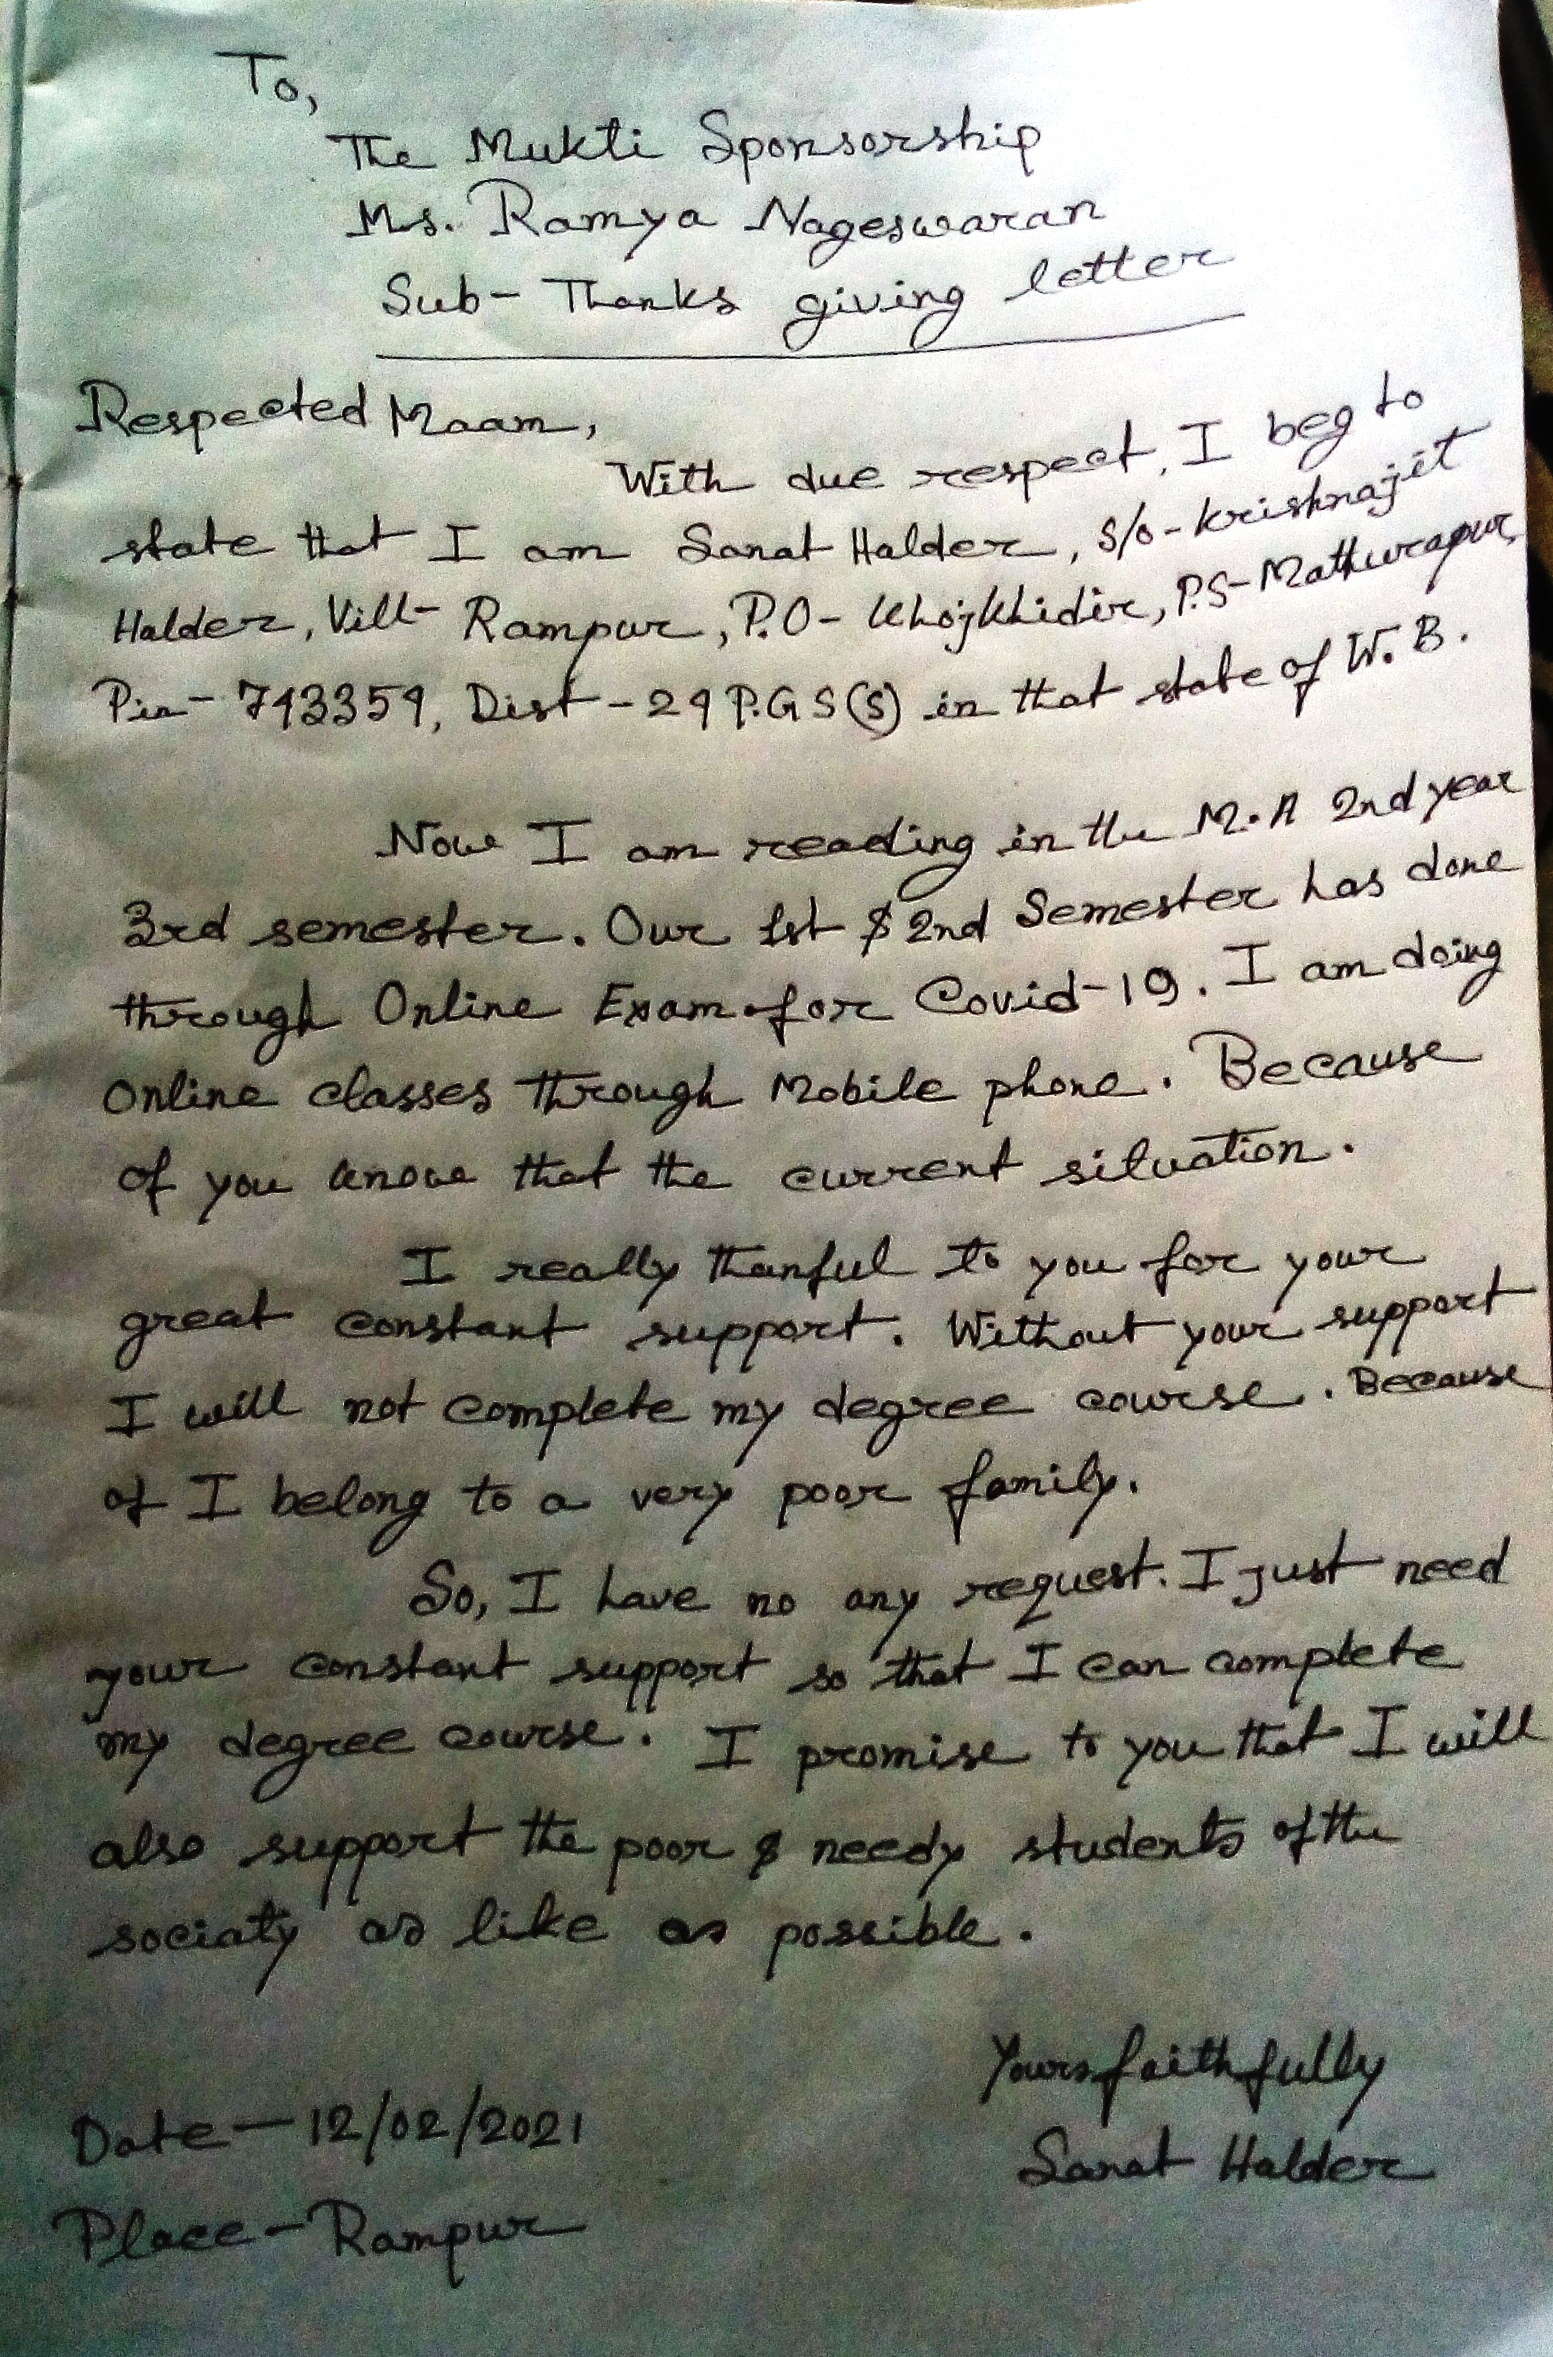 To,
The Mukti Sponsorship
Ms. Ramya Nageswaran
Sub- Thanks giving letter
Respected Maam,
With due respect, I beg to
state that I am Sanat Halder, S/o- Krishnajit
Halder, Vill- Rampur, P.O- Khojkhidir, P.S- Mathurapur,
Pin- 743354, Dist-24 P.G S(S) in that state of W.B.
Now I am reading in the M.A 2nd year
3rd semester. Our 1st & 2nd Semester has done
through Online Exam for Covid-19. I am doing
Online classes through Mobile phone. Because
of you know that the current situation.
I really thanful to you for your
great constant support. Without your support
I will not complete my degree course. Because
of I belong to a very poor family.
So, I have no any request. I just need
your constant support so that I can complete
my degree course. I promise to you that I will
also support the poor & needy students of the
sociaty as like as possible.
Yours faithfully
Sanat Halder
Date- 12/02/2021
Place- Rampur